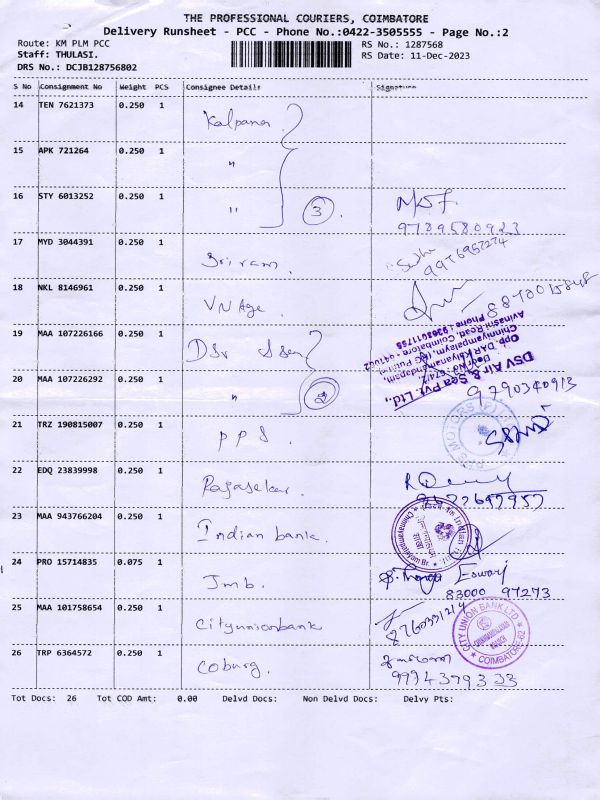 THE PROFESSIONAL COURIERS, COIMBATORE
Delivery Runsheet - PCC - Phone No.:0422-3505555 - Page No.:2
Route: KM PLM PCC RS No.: 1287568
Staff: THULASI. RS Date: 11-Dec-2023
DRS No.: DCJB128756802
S No Consignment No Weight PCS Consignee Details Signature
14 TEN 7621373 0.250 1 Kalpana
15 APK 721264 0.250 1 "
16 STY 6013252 0.250 1 " 3
9789580923
17 MYD 3044391 0.250 1 Sriram
9976957274
18 NKL 8146961 0.250 1 VN Age
19 MAA 107226166 0.250 1 DSV
DSV Air & Sea Pvt. Ltd.,
Avinashi Road, Coimbatore - 641062
20 MAA 107226292 0.250 1 " 2
9790340913
21 TRZ 190815007 0.250 1 PPS.
22 EDQ 23839998 0.250 1 Rajasekar.
23 MAA 943766204 0.250 1 Indian bank.
24 PRO 15714835 0.075 1 Jmb.
Eswari
83000 97273
25 MAA 101758654 0.250 1 Cityunionbank
8760331214
CITY UNION BANK LTD
COIMBATORE-62
26 TRP 6364572 0.250 1 Coburg.
9974379333
Tot Docs: 26 Tot COD Amt: 0.00 Delvd Docs: Non Delvd Docs: Delvy Pts: